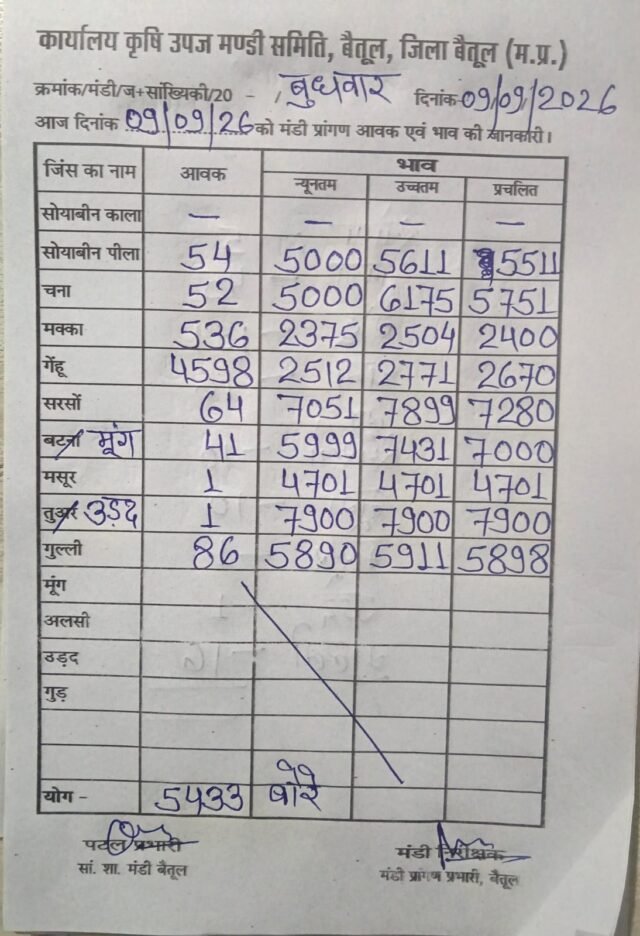 कार्यालय कृषि उपज मण्डी समिति, बैतूल, जिला बैतूल (म.प्र.)
क्रमांक/मंडी/ज+सांख्यिकी/20 - , बुधवार दिनांक 09/09/2026
आज दिनांक 09/09/26 को मंडी प्रांगण आवक एवं भाव की जानकारी।
जिंस का नाम आवक भाव
न्यूनतम उच्चतम प्रचलित
सोयाबीन काला — — — —
सोयाबीन पीला 54 5000 5611 5511
चना 52 5000 6175 5751
मक्का 536 2375 2504 2400
गेंहू 4598 2512 2771 2670
सरसों 64 7051 7899 7280
बटरा मूंग 41 5999 7431 7000
मसूर 1 4701 4701 4701
तुअर उड़द 1 7900 7900 7900
गुल्ली 86 5890 5911 5898
मूंग
अलसी
उड़द
गुड़
योग - 5433 बोरे
पटल प्रभारी मंडी निरीक्षक
सां. शा. मंडी बैतूल मंडी प्रांगण प्रभारी, बैतूल